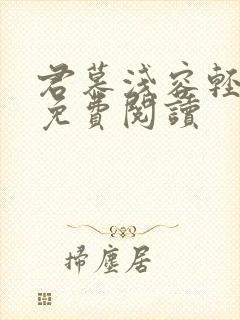 君慕淺容輕
免費閱讀
掃塵居